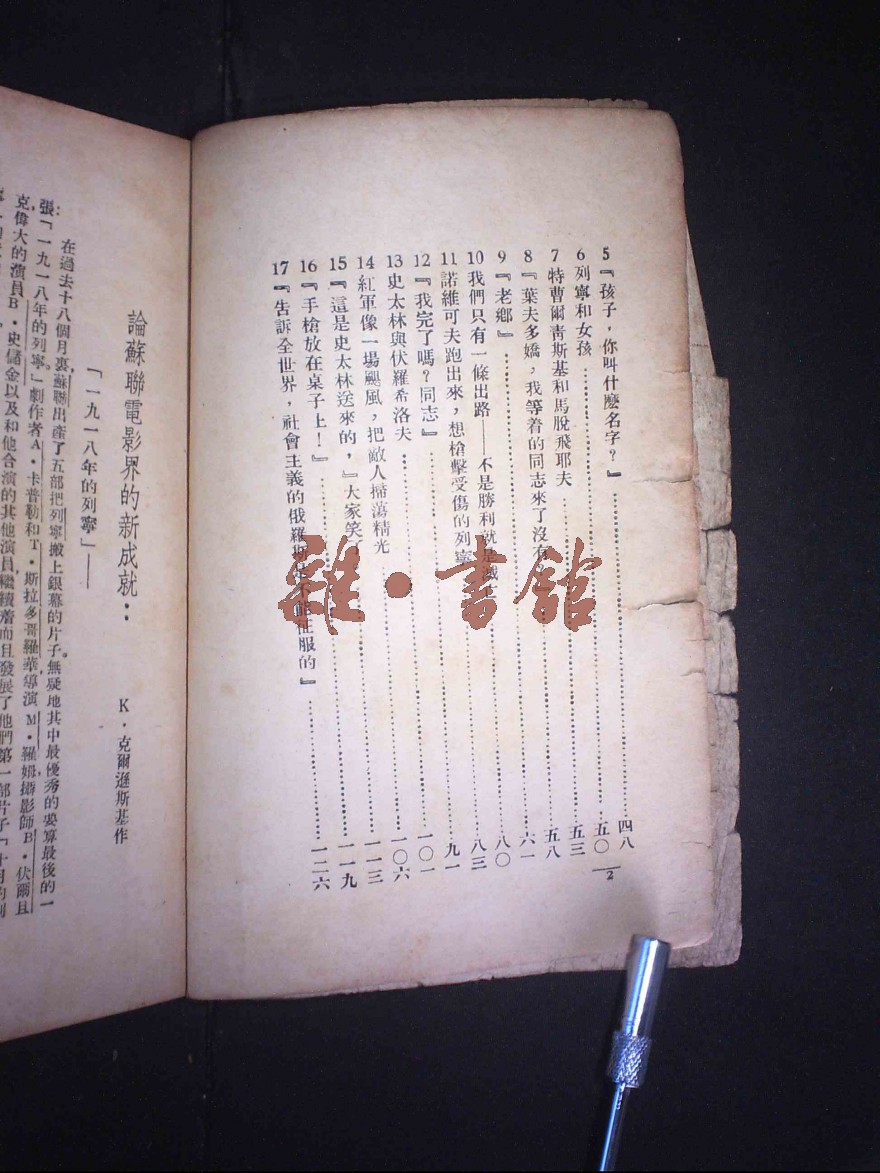 5『孩子，你叫什麽名字？』……四八
6列寧和女孩……五〇
7特曹爾靑斯基和馬脫飛耶夫……五三
8『葉夫多嬌，我等着的同志來了沒有……五八
9『老鄉』……六一
10我們只有一條出路——不是勝利就是滅……八〇
11諾維可夫跑出來，想槍擊受傷的列寧……八三
12『我完了嗎？同志』……九一
13史太林與伏羅希洛夫……一〇一
14紅軍像一場颶風，把敵人掃蕩精光……一〇六
15『這是史太林送來的，』大家笑了……一一三
16『手槍放在桌子上！』……一一九
17『告訴全世界，社會主義的俄羅斯是不能征服的』……一二六
2
雜·書館
論蘇聯電影界的新成就：
「一九一八年的列寧」——
K·克爾遜斯基作
在過去十八個月裏，蘇聯出產了五部把列寧搬上銀幕的片子。無疑地其中最優秀的要算最後的一
張：「一九一八年的列寧」。劇作者A·卡普勒和T·斯拉多哥羅華導演M·羅姆，攝影師B·伏爾且
克偉大的演員B·史儲金以及和他合演的其他演員，繼續着而且發展了他們第一部片子「十月的列